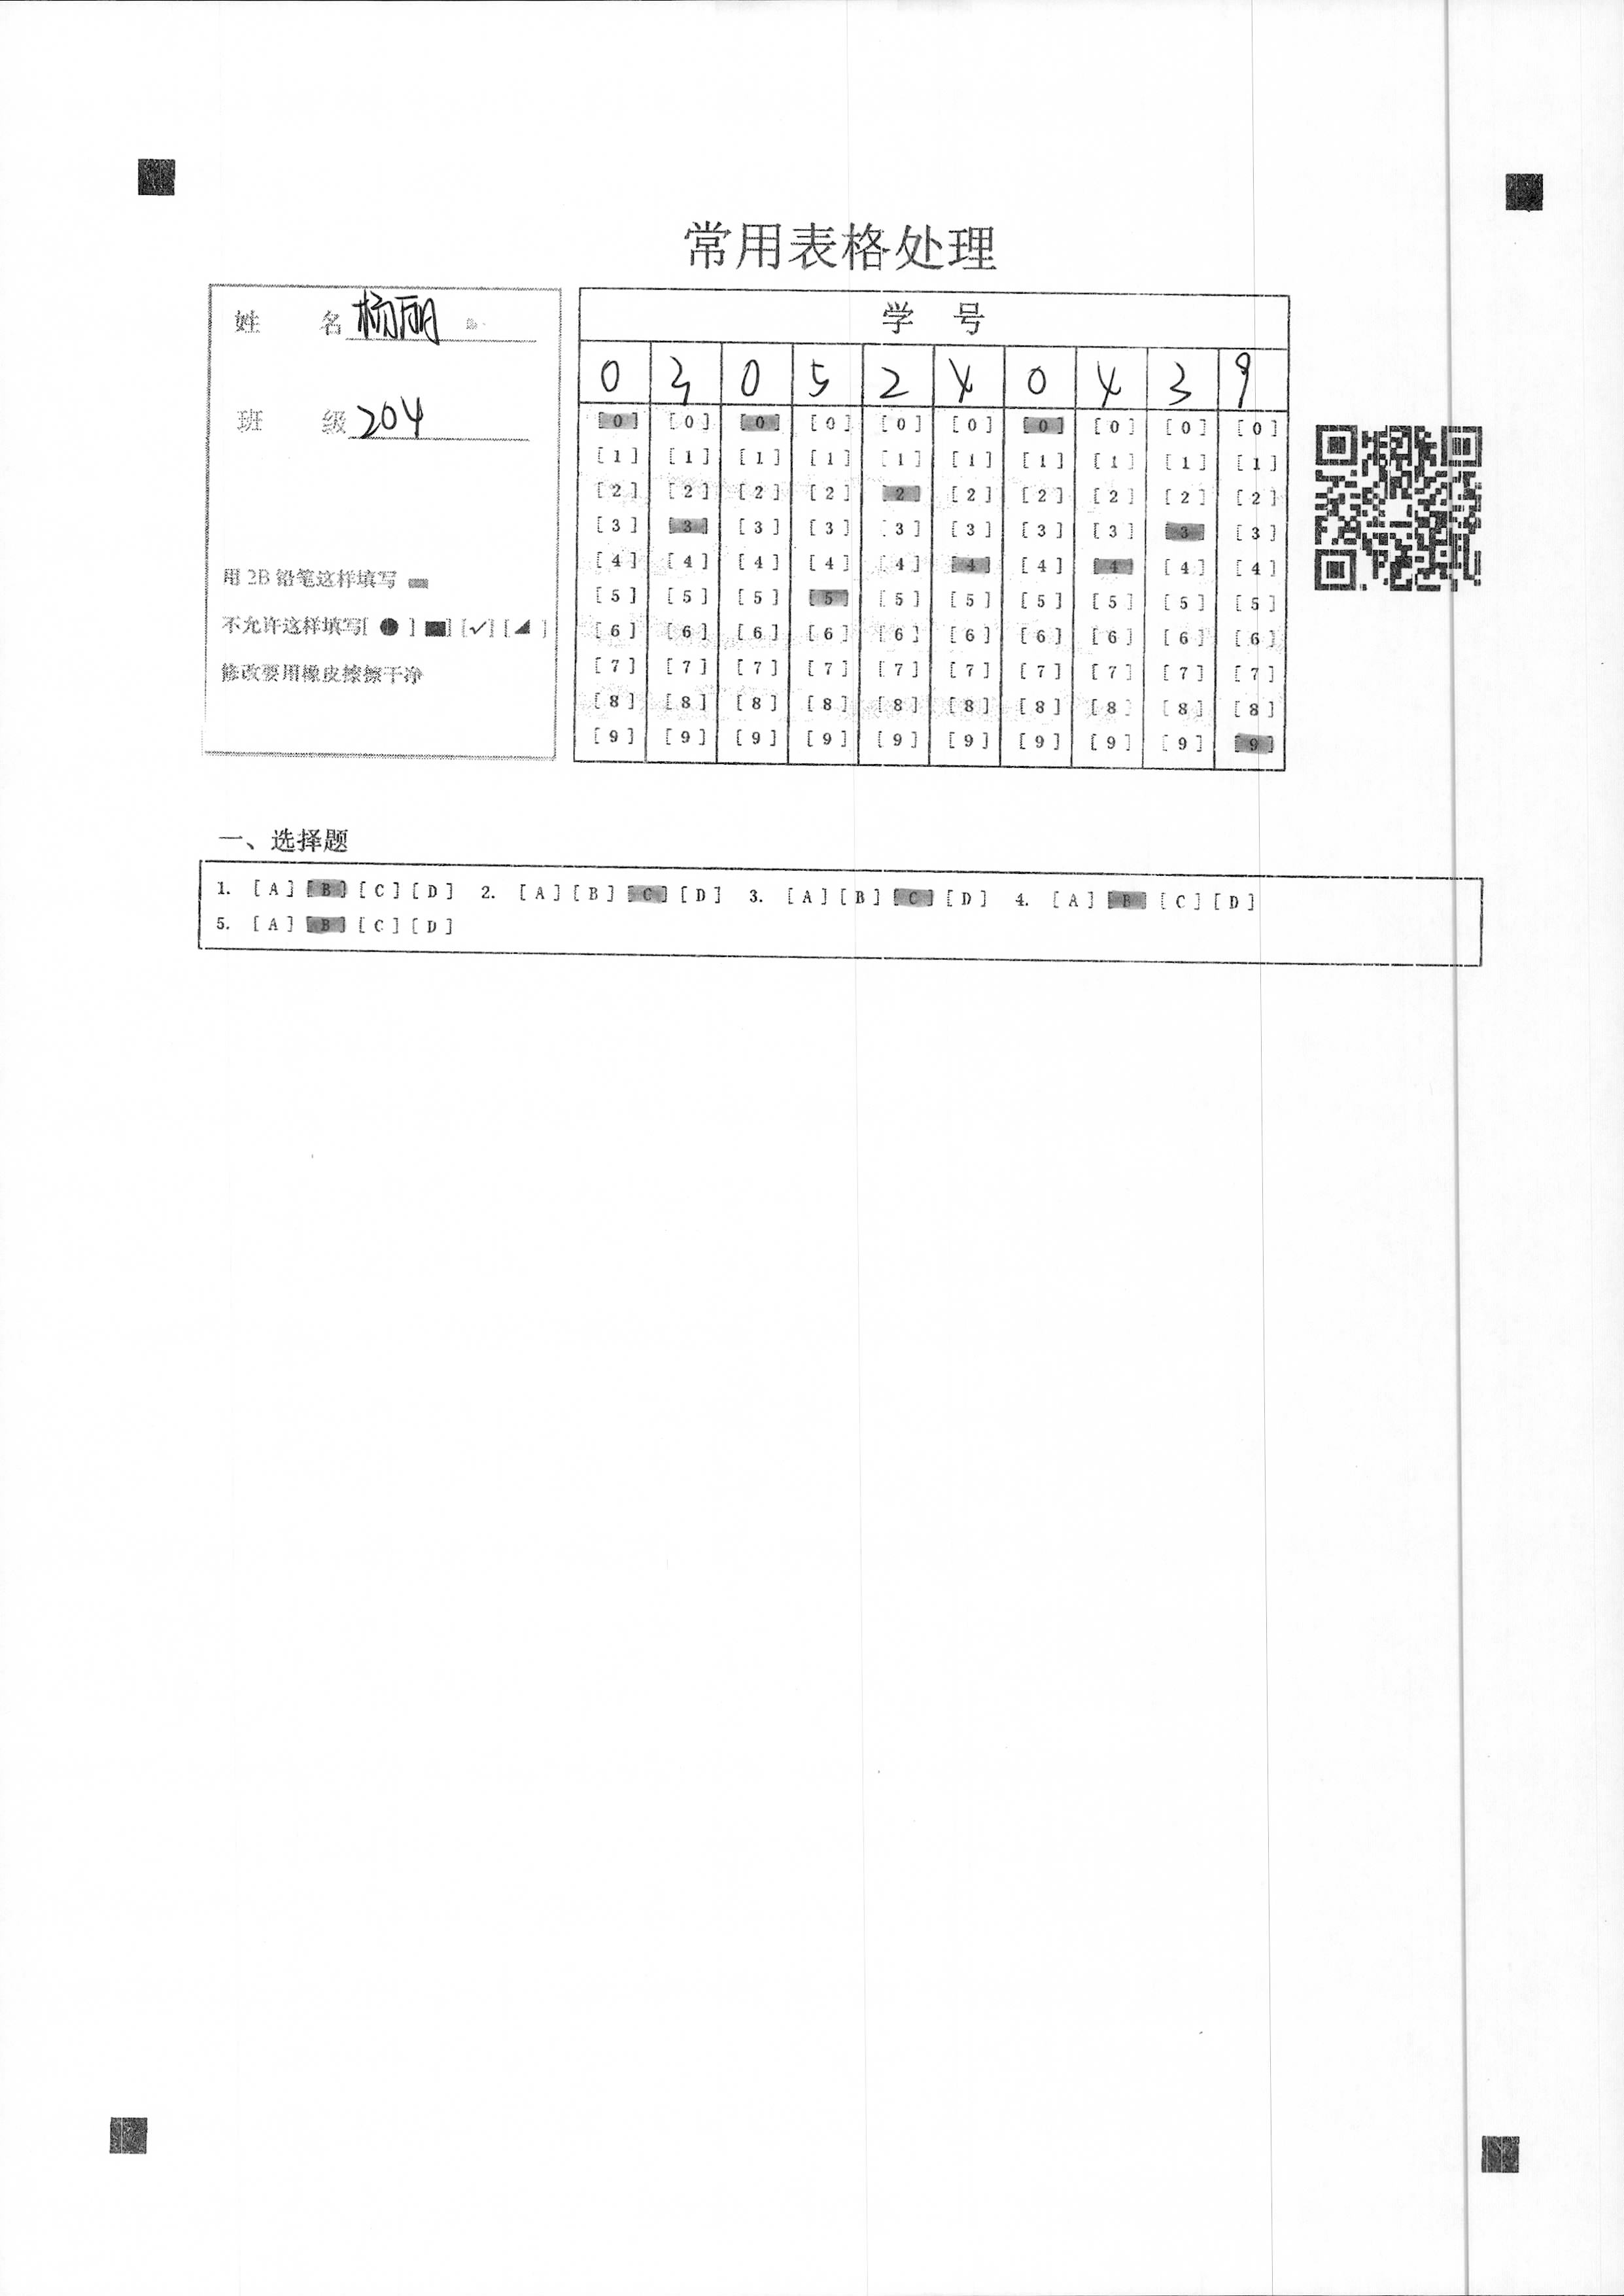 常用表格处理
姓 名 杨丽
班 级 204
用 2B 铅笔这样填写
不允许这样填写[ ● ] [■] [✓] [◢ ]
修改要用橡皮擦擦干净
学 号
0 3 0 5 2 4 0 4 3 9
[0] [0] [0] [0] [0] [0] [0] [0] [0] [0]
[1] [1] [1] [1] [1] [1] [1] [1] [1] [1]
[2] [2] [2] [2] [2] [2] [2] [2] [2] [2]
[3] [3] [3] [3] [3] [3] [3] [3] [3] [3]
[4] [4] [4] [4] [4] [4] [4] [4] [4] [4]
[5] [5] [5] [5] [5] [5] [5] [5] [5] [5]
[6] [6] [6] [6] [6] [6] [6] [6] [6] [6]
[7] [7] [7] [7] [7] [7] [7] [7] [7] [7]
[8] [8] [8] [8] [8] [8] [8] [8] [8] [8]
[9] [9] [9] [9] [9] [9] [9] [9] [9] [9]
一、选择题
1. [A] [B] [C] [D] 2. [A] [B] [C] [D] 3. [A] [B] [C] [D] 4. [A] [B] [C] [D]
5. [A] [B] [C] [D]